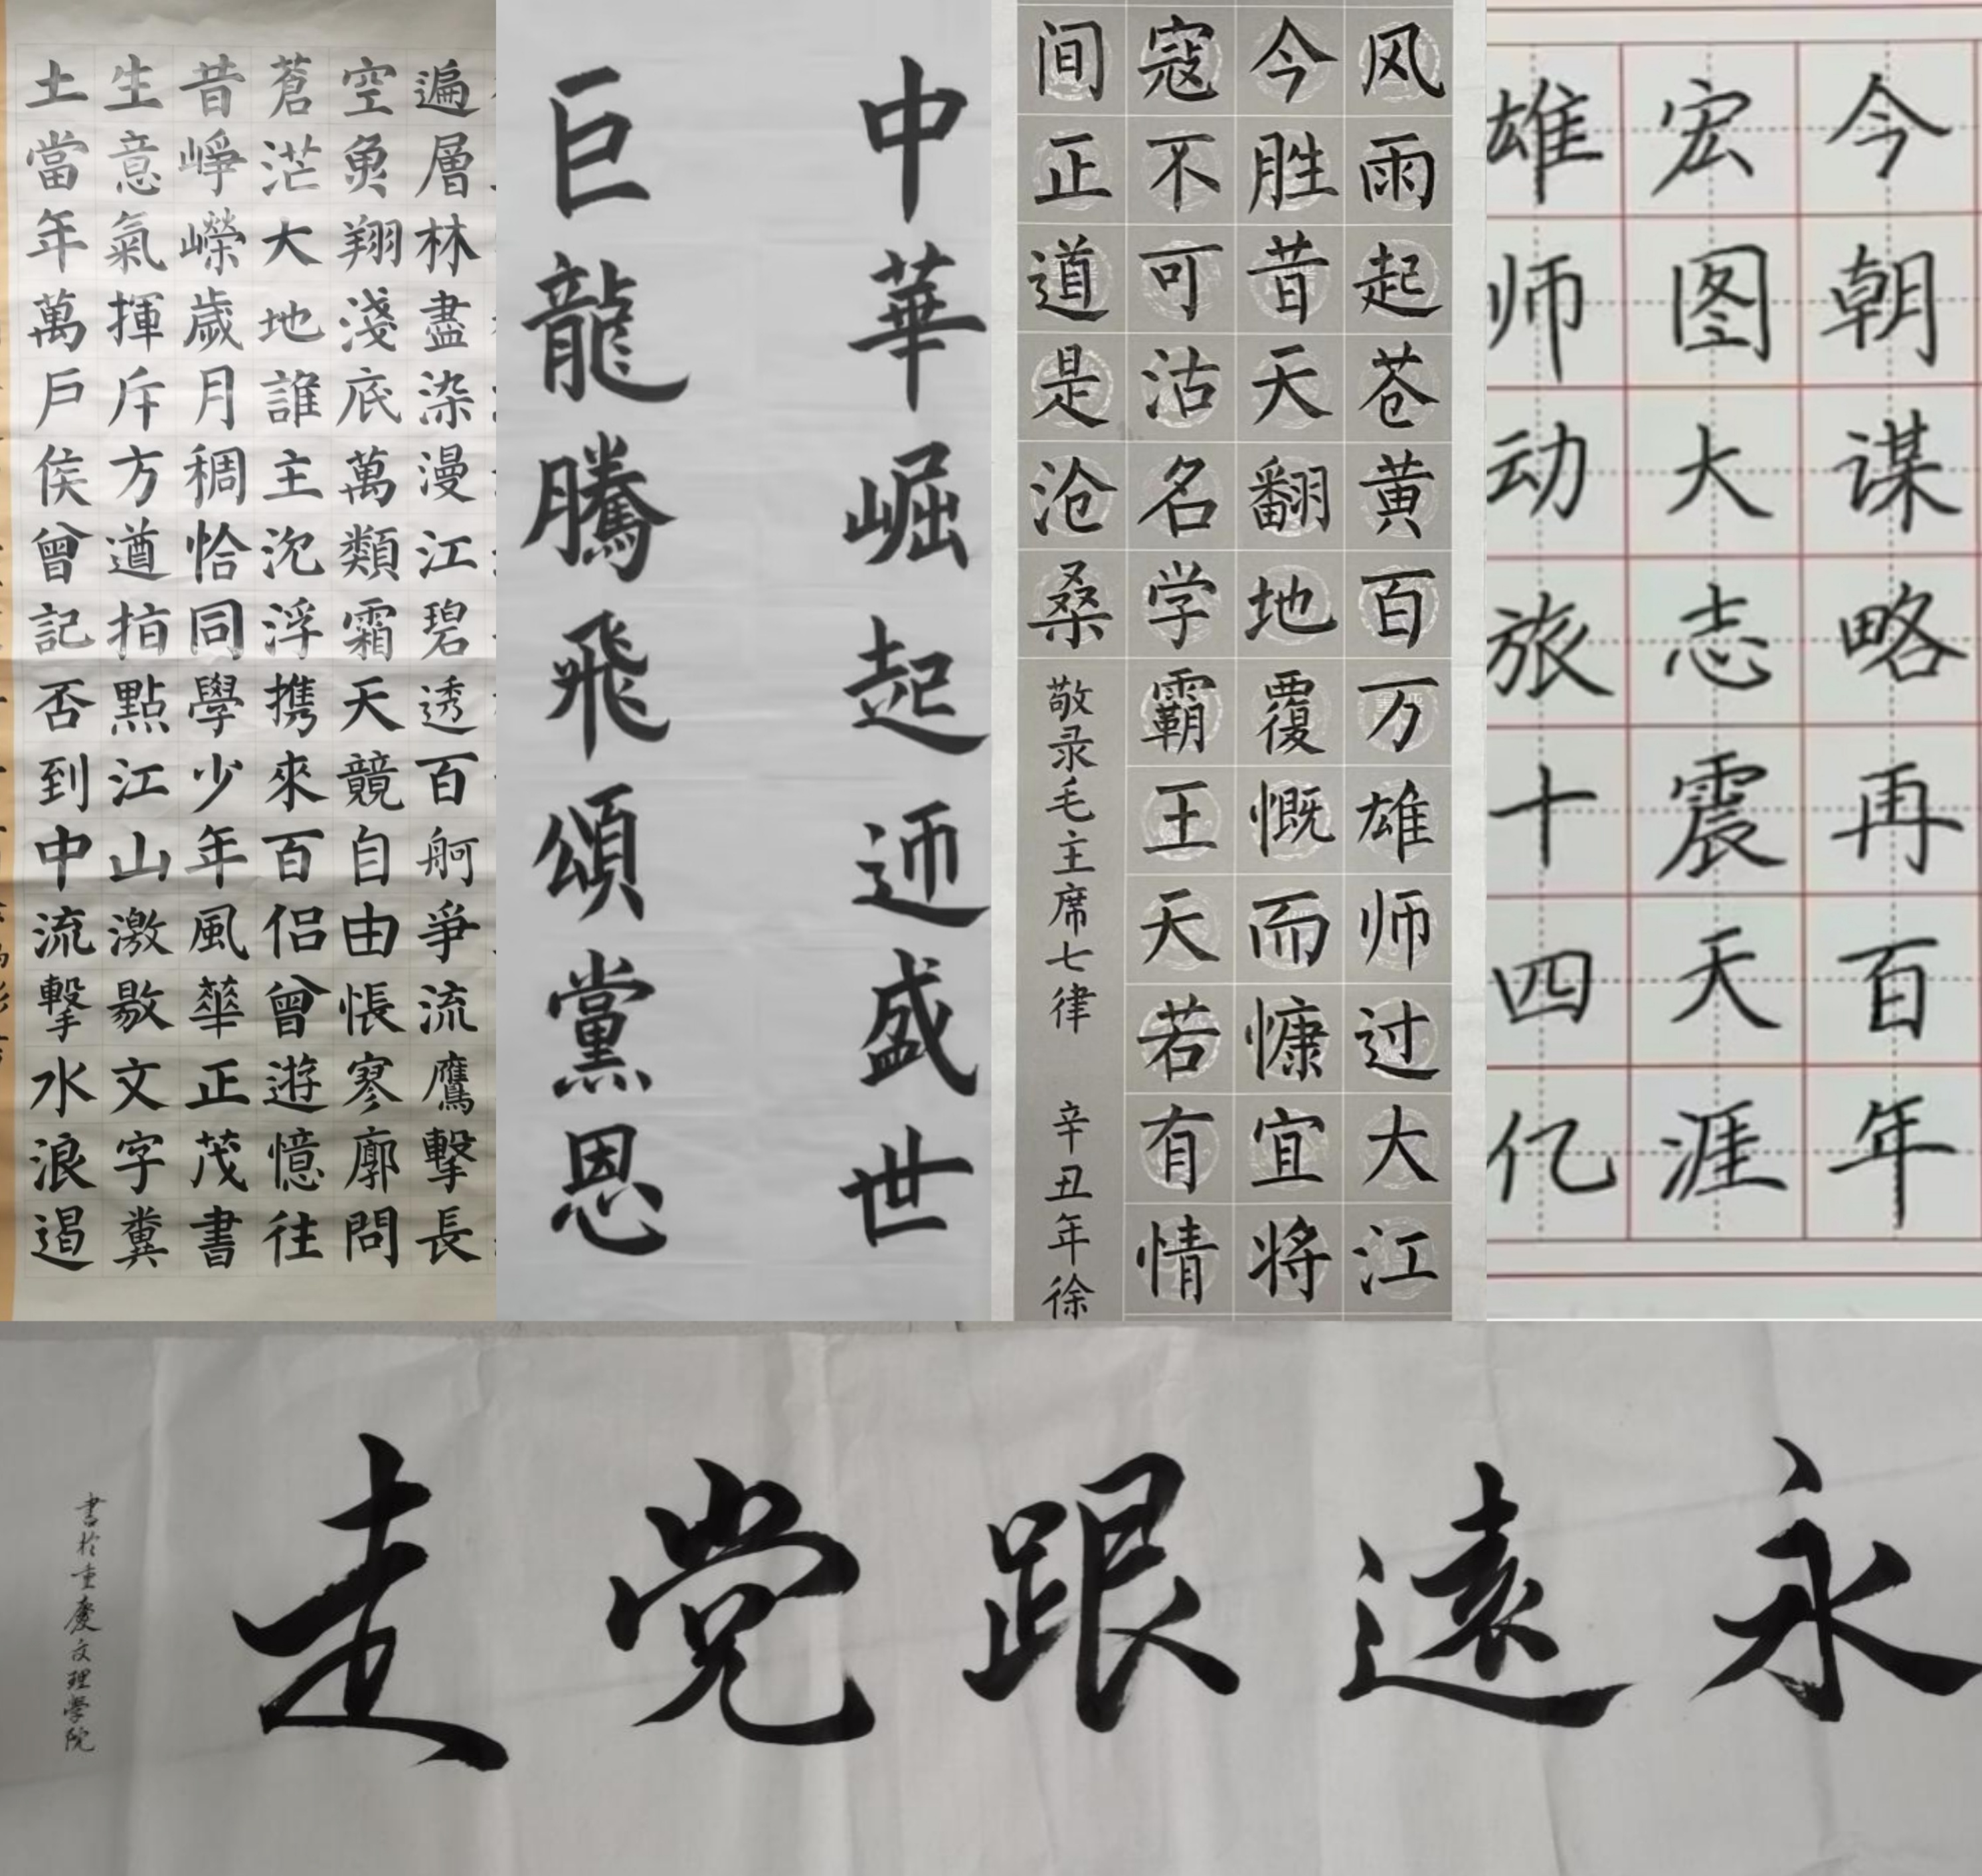 遍層林盡染漫江碧透百舸爭流鷹擊長
空魚翔淺底萬類霜天競自由悵寥廓問
蒼茫大地誰主沉浮携來百侣曾遊憶往
昔崢嶸歲月稠恰同學少年風華正茂書
生意氣揮斥方遒指點江山激敭文字糞
土當年萬戶侯曾記否到中流擊水浪遏
中華崛起迊盛世
巨龍騰飛頌黨恩
风雨起苍黄百万雄师过大江
今胜昔天翻地覆慨而慷宜将
寇不可沽名学霸王天若有情
间正道是沧桑
敬录毛主席七律 辛丑年徐
今朝谋略再百年
宏图大志震天涯
雄师动旅十四亿
永遠跟党走
書於重慶文理學院